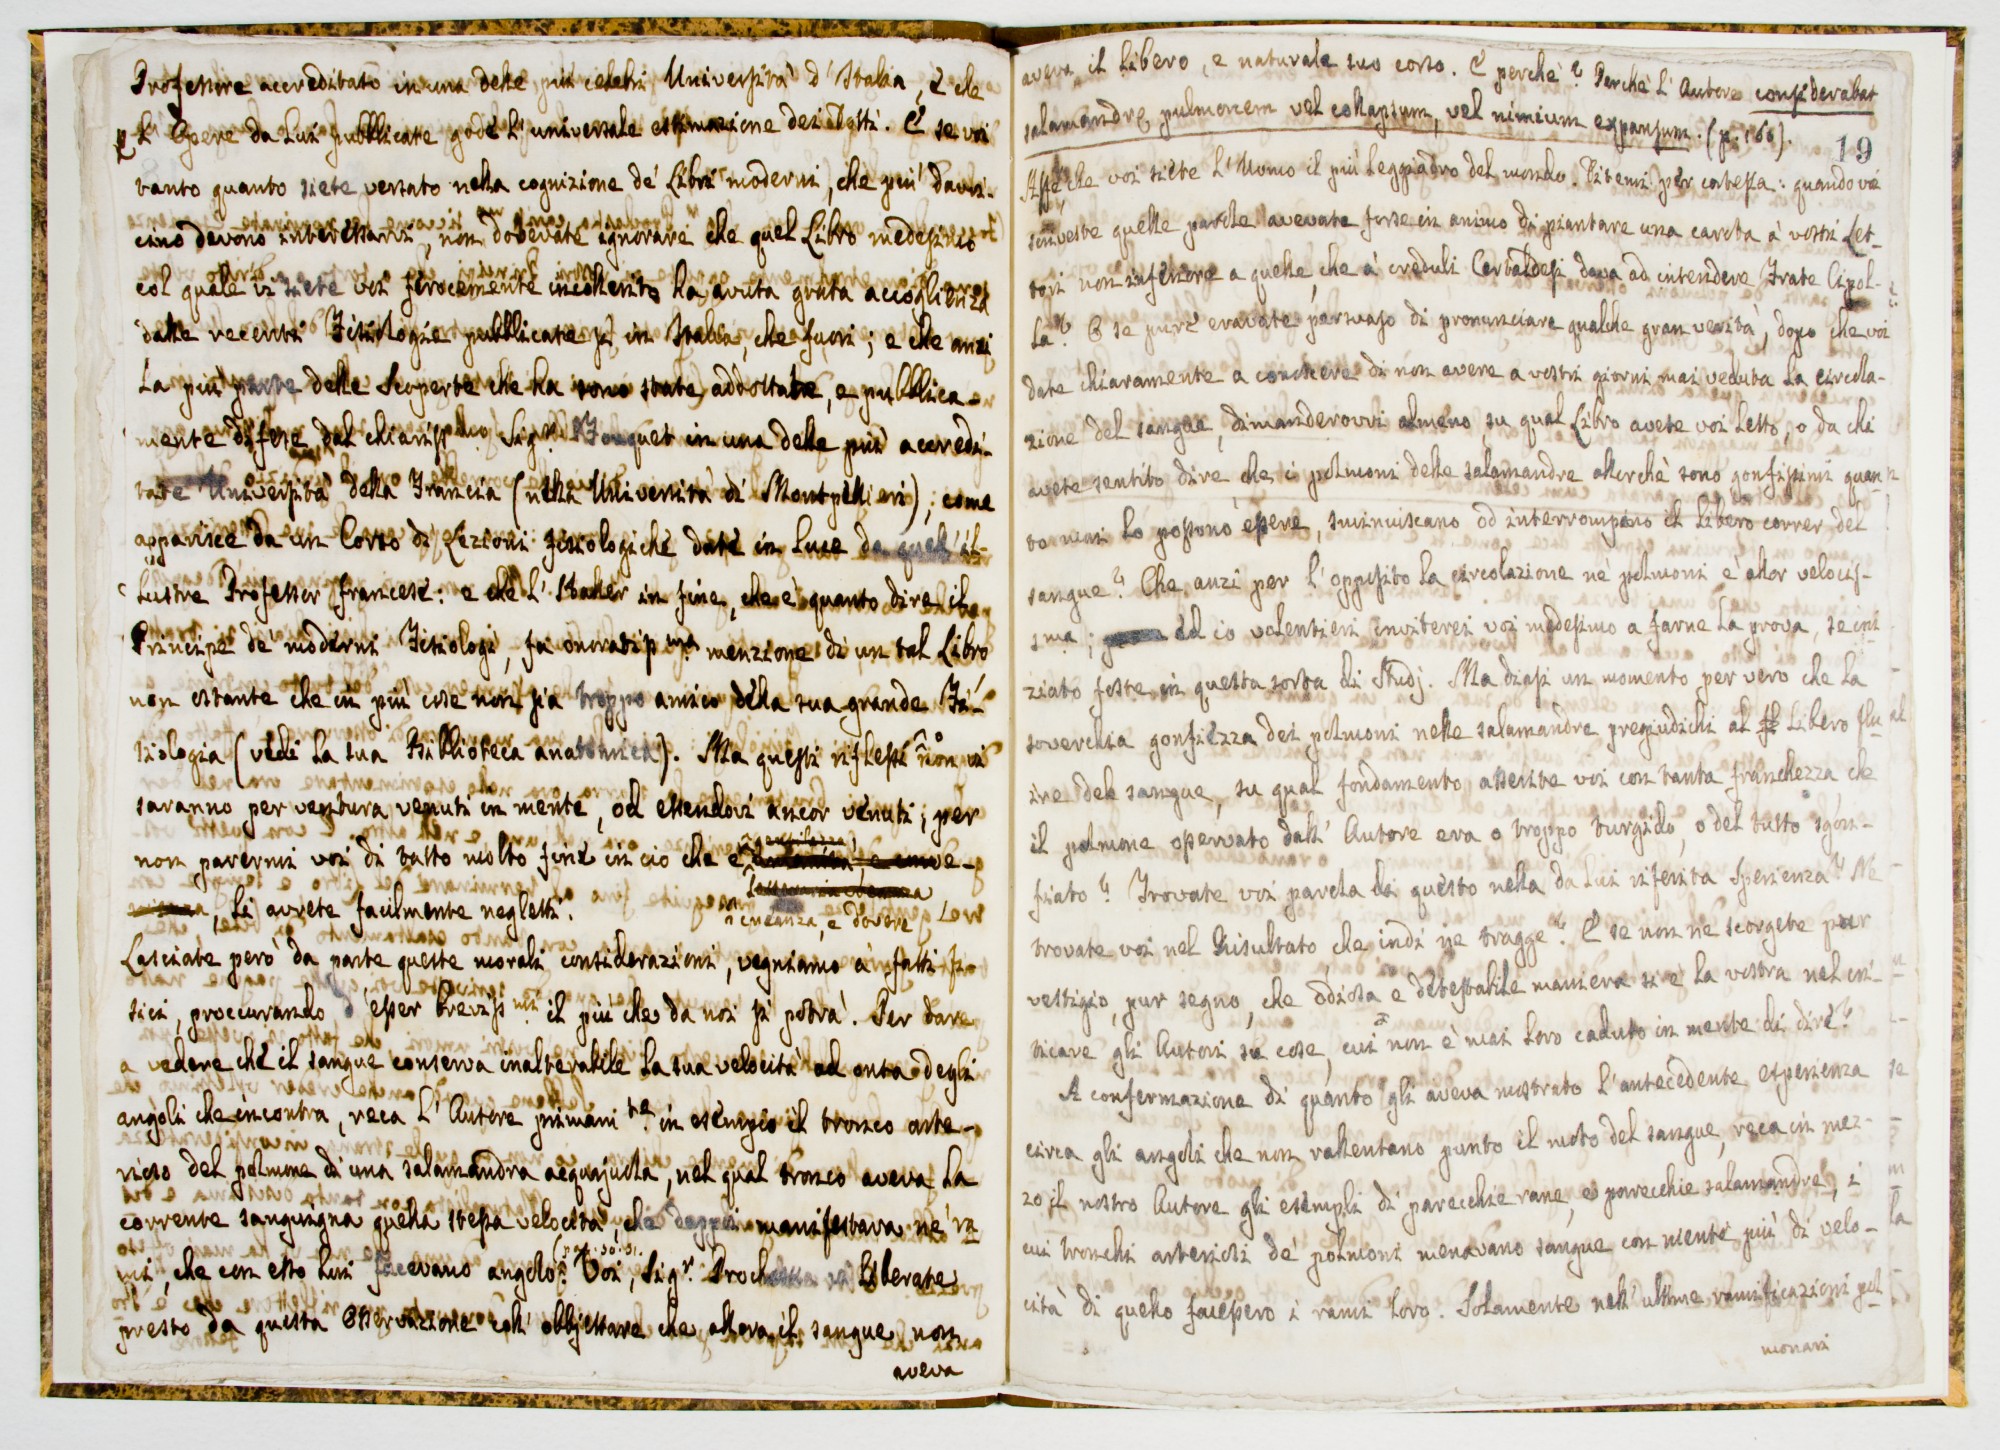 Professore accreditato in una delle più celebri Università d'Italia, e che
l'Opere da Lui pubblicate gode l'universale estimazione dei dotti. E se voi
tanto quanto siete versato nella cognizione de' Libri moderni, che più davvi-
cino devono interessarvi, non dovevate ignorare che quel Libro medesimo
col quale vi siete voi ferocemente incollerito ha avuta grata accoglienza
dalle recenti Fisiologie pubblicate sì in Italia, che fuori; e che anzi
la più parte delle Scoperte che ha sono state addottate, e pubblica-
mente difese dal chiariss.mo Sig.r Fouquet in una delle più accredi-
tate Università della Francia (nella Università di Montpellieri); come
apparisce da un Corso di Lezioni fisiologiche date in luce da quell'il-
lustre Professor francese: e che l'Haller in fine, che è quanto dire il
Principe de' moderni Fisiologi, fa onoratiss.ma menzione di un tal Libro
non ostante che in più cose non sia troppo amico della sua grande Fi-
siologia (vedi la sua Biblioteca anatomica). Ma questi riflessi non vi
saranno per ventura venuti in mente, od essendovi ancor venuti, per
non parermi voi di tatto molto fine in ciò che è
, li avrete facilmente negletti. creanza, e dovere
Lasciate però da parte queste morali considerazioni, vegniamo a' fatti fi-
sici, proccurando d'esser breviss.mi il più che da noi si potrà. Per dare
a vedere che il sangue conserva inalterabile la sua velocità ad onta degli
angoli che incontra, reca l'Autore primam.te in esempio il tronco arte-
rioso del polmone di una salamandra acquajuola, nel qual tronco aveva la
corrente sanguigna quella stessa velocità, che doppoi manifestava ne' ra-
mi, che con esso lui facevano angolo. Voi, Sig.r Prochaska vi liberate
presto da questa Osservazione coll'obbjettare che allora il sangue non
aveva
aveva il libero, e naturale suo corso. E perchè? Perchè l'Autore considerabat
salamandræ pulmonem vel collapsum, vel nimium expansum. (p. 166).
19
Affè, che voi siete l'Uomo il più leggiadro del mondo. Ditemi per cortesia: quando voi
scriveste quelle parole avevate forse in animo di piantare una carota a' vostri Let-
tori non inferiore a quelle, che a' creduli Certaldesi dava ad intendere Frate Cipol-
la? O se pure eravate persuaso di pronunciare qualche gran verità, dopo che voi
date chiaramente a conoscere di non avere a vostri giorni mai veduta la circola-
zione del sangue, dimanderovvi almeno su qual Libro avete voi letto, o da chi
avete sentito dire che i polmoni delle salamandre allorchè sono gonfissimi quan
to mai lo possono essere, sminuiscano od interrompano il libero correr del
sangue? Che anzi per l'opposito la circolazione ne' polmoni è allor velocis-
sima; ed io volentieri inviterei voi medesimo a farne la prova, se ini-
ziato foste in questa sorta di Studj. Ma diasi un momento per vero che la
soverchia gonfiezza dei polmoni nelle salamandre pregiudichi al libero flu
ire del sangue, su qual fondamento asserite voi con tanta franchezza che
il polmone osservato dall'Autore era o troppo turgido, o del tutto sgon-
fiato? Trovate voi parola di questo nella da Lui riferita Sperienza? Ne
trovate voi nel Risultato che indi ne tragge? E se non ne scorgete pur
vestigio, pur segno, che odiosa e detestabile maniera si è la vostra nel cri-
ticare gli Autori su cose, cui non è mai loro caduto in mente di dire?
A confermazione di quanto gli aveva mostrato l'antecedente esperienza
circa gli angoli che non rallentano punto il moto del sangue, reca in mez-
zo il nostro Autore gli esempli di parecchie rane, e parecchie salamandre, i
cui tronchi arteriosi de' polmoni menavano sangue con niente più di velo-
cità di quello facessero i rami loro. Solamente nell'ultime ramificazioni pol
monari